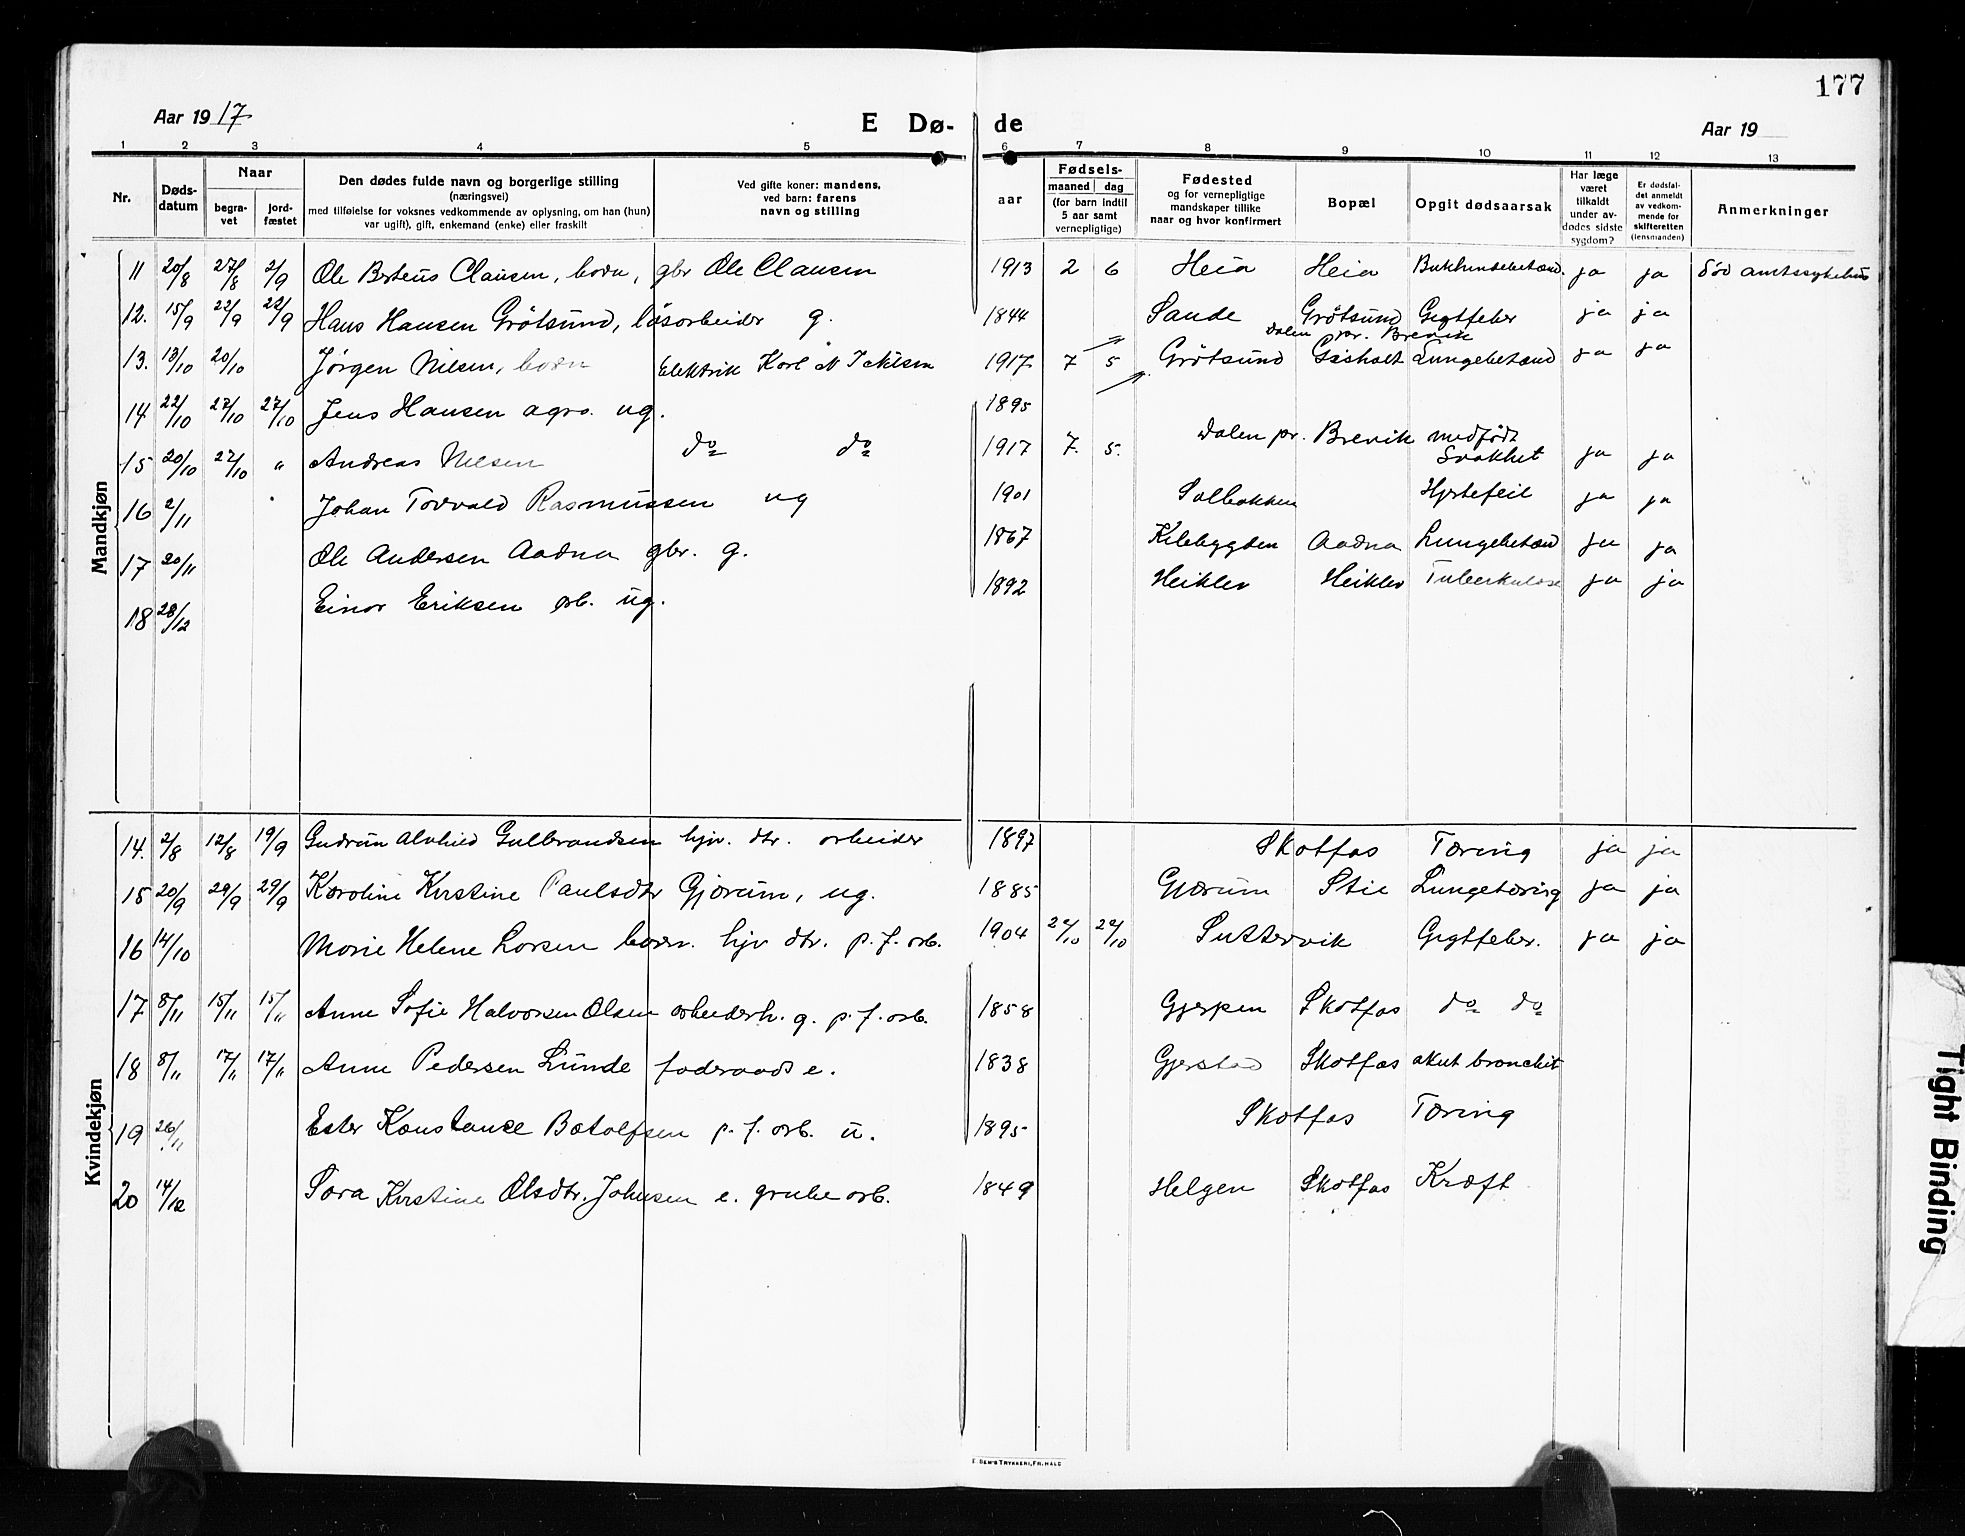 177
Aar 1917
E Dø- de
Aar 19
1 2 3 4 5 6 7 8 9 10 11 12 13
Nr.
Døds-
datum
Naar
begra-
vet
jord-
fæstet
Den dødes fulde navn og borgerlige stilling
(næringsvei)
med tilføielse for voksnes vedkommende av oplysning, om han (hun)
var ugift), gift, enkemand (enke) eller fraskilt
Ved gifte koner: mandens,
ved barn: farens
navn og stilling
aar
Fødsels-
maaned dag
(for barn indtil
5 aar samt
vernepligtige)
Fødested
og for vernepligtige
mandskaper tillike
naar og hvor konfirmert
Bopæl
Opgit dødsaarsak
Har læge
været
tilkaldt
under av-
dødes sidste
sygdom?
Er dødsfal-
det anmeldt
av vedkom-
mende for
skifteretten
(lensmanden)
Anmerkninger
Mandkjøn
11 20/8 27/8 2/9 Ole Berteus Clausen, barn, gbr Ole Clausen 1913 2 6 Heia Heia Bukhindebetænd. ja ja Død amtssykehus
12. 15/9 22/9 22/9 Hans Hansen Grötsund, løsarbeider g. 1844 Sande Grötsund Gigtfeber ja ja
Dalen pr. Brevik
13. 13/10 20/10 Jørgen Nilsen, barn Elektrik Karl N 1917 7 5 Grötsund Lungebetænd ja ja
14 22/10 27/10 27/10 Jens Hansen agro. ug. 1895
15 20/10 27/10 " Andreas Nilsen do do 1917 7. 5. Dalen pr. Brevik medfödt
Svakhet ja ja
16 2/11 Johan Torvald Rasmussen ug 1901 Solbakken Hjertefeil ja ja
17 20/11 Ole Andersen Aadna gbr. g. 1867 Kilebygden Aadna Lungebetænd ja ja
18 28/12 Einar Eriksen arb. ug. 1892 Heiklev Heiklev Tuberkulose ja ja
Kvindekjøn
14. 2/8 12/8 19/9 Gudrun Alvhild Gulbrandsen hjv. dtr. arbeider 1897 Skotfos Tæring ja ja
15 20/9 29/9 29/9 Karoline Kirstine Paulsdtr Gjærum, ug. 1885 Gjærum Stie Lungetæring ja ja
16 14/10 Marie Helene Larsen barn. hjv dtr. p. f. arb. 1904 20/10 20/10 Suttervik Gigtfeber. ja ja
17 8/11 15/11 15/11 Anne Sofie Halvorsen Olsen arbeiderh. g. p. f. arb. 1858 Gjerpen Skotfos do do
18 8/11 17/11 17/11 Anne Pedersen Lunde føderaads e. 1838 Gjerstad Skotfos akut bronchit
19 26/11 Ester Konstanse Botolfsen p. f. arb. u. 1895 Skotfos Tæring
20 14/12 Sara Kirstine Olsdtr. Johnsen e. grube arb. 1849 Helgen Skotfos Kræft
TRYKKERI, FR.HALD
Tight Binding